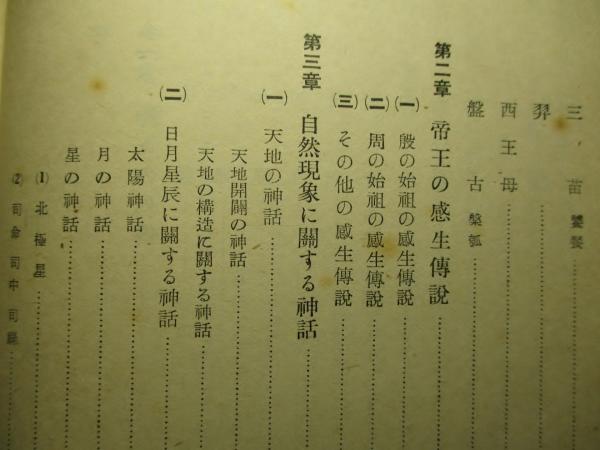 三苗饕餮
羿
西王母
盤古槃瓠
第二章 帝王の感生傳說
(一) 殷の始祖の感生傳說
(二) 周の始祖の感生傳說
(三) その他の感生傳說
第三章 自然現象に關する神話
(一) 天地の神話
天地開闢の神話
天地の構造に關する神話
(二) 日月星辰に關する神話
太陽神話
月の神話
星の神話
(1) 北極星
(2) 司命 司中 司祿